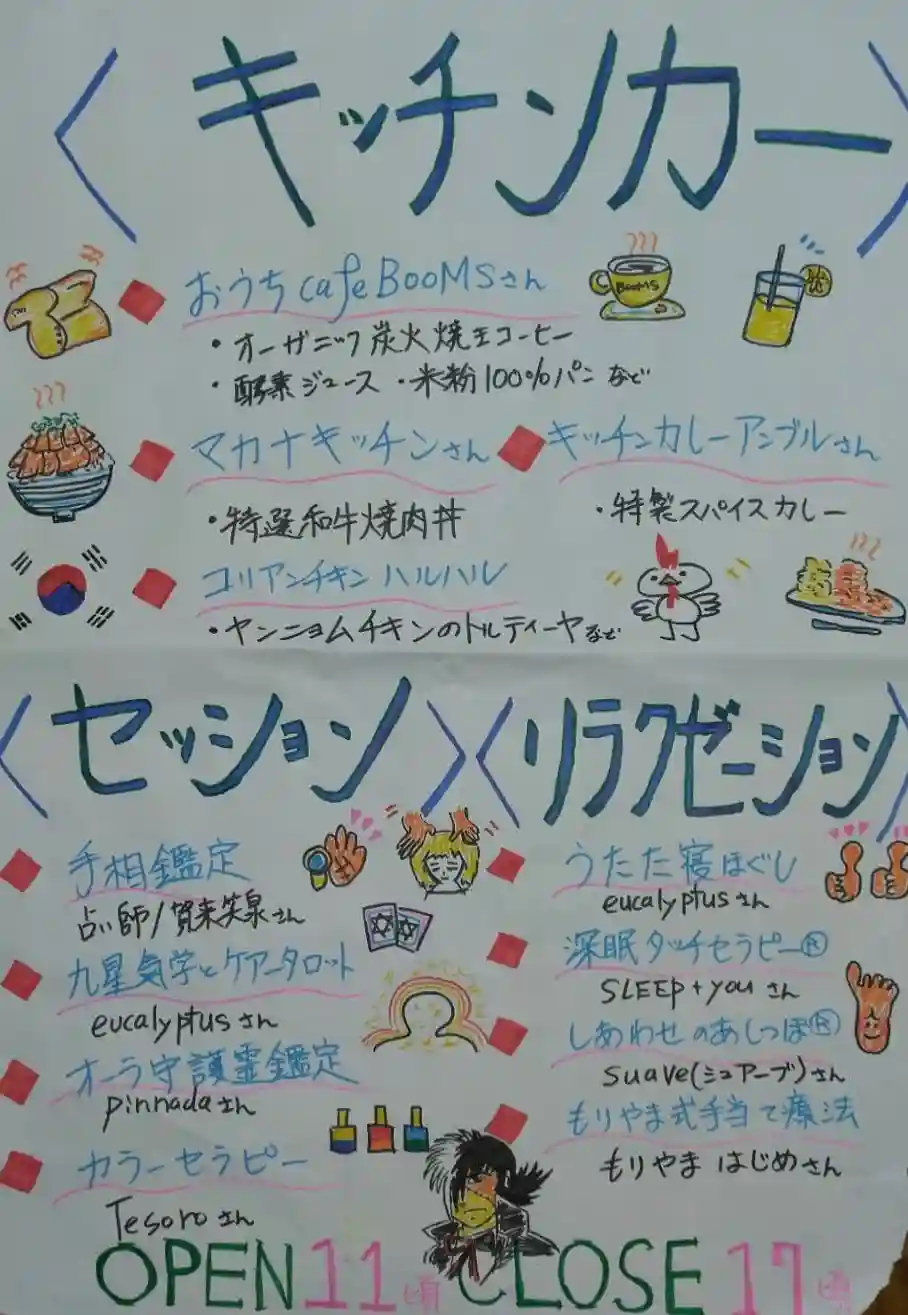 〈キッチンカー〉
おうちcafe BooMSさん
BooMS
・オーガニック炭火焼玉コーヒー
・酵素ジュース ・米粉100%パンなど
マカナキッチンさん
・特選和牛焼肉丼
キッチンカレーアンブルさん
・特製スパイスカレー
コリアンチキン ハルハル
・ヤンニョムチキンのトルティーヤなど
〈セッション〉
手相鑑定
占い師/賀来笑泉さん
九星気学とケアータロット
eucalyptusさん
オーラ守護霊鑑定
pinnadaさん
カラーセラピー
Tesoroさん
〈リラクゼーション〉
うたた寝ほぐし
eucalyptusさん
深眠タッチセラピー®
SLEEP+youさん
しあわせのあしつぼ®
suave(シュアーブ)さん
もりやま式手当て療法
もりやま はじめさん
OPEN 11 CLOSE 17